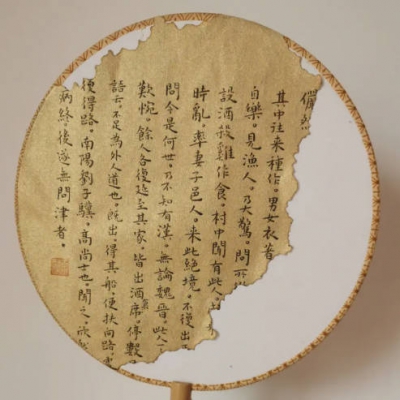 儼然
其中往來種作。男女衣著
自樂。見漁人。乃大驚。問所
設酒殺雞作食。村中聞有此人。
時亂。率妻子邑人。來此絕境。不復出
問今是何世。乃不知有漢。無論魏晉。此人一
歎惋。餘人各復延至其家。皆出酒席。停數
語云。不足為外人道也。既出。得其船。便扶向路
復得路。南陽劉子驥。高尚士也。聞之。欣然
病終。後遂無問津者。